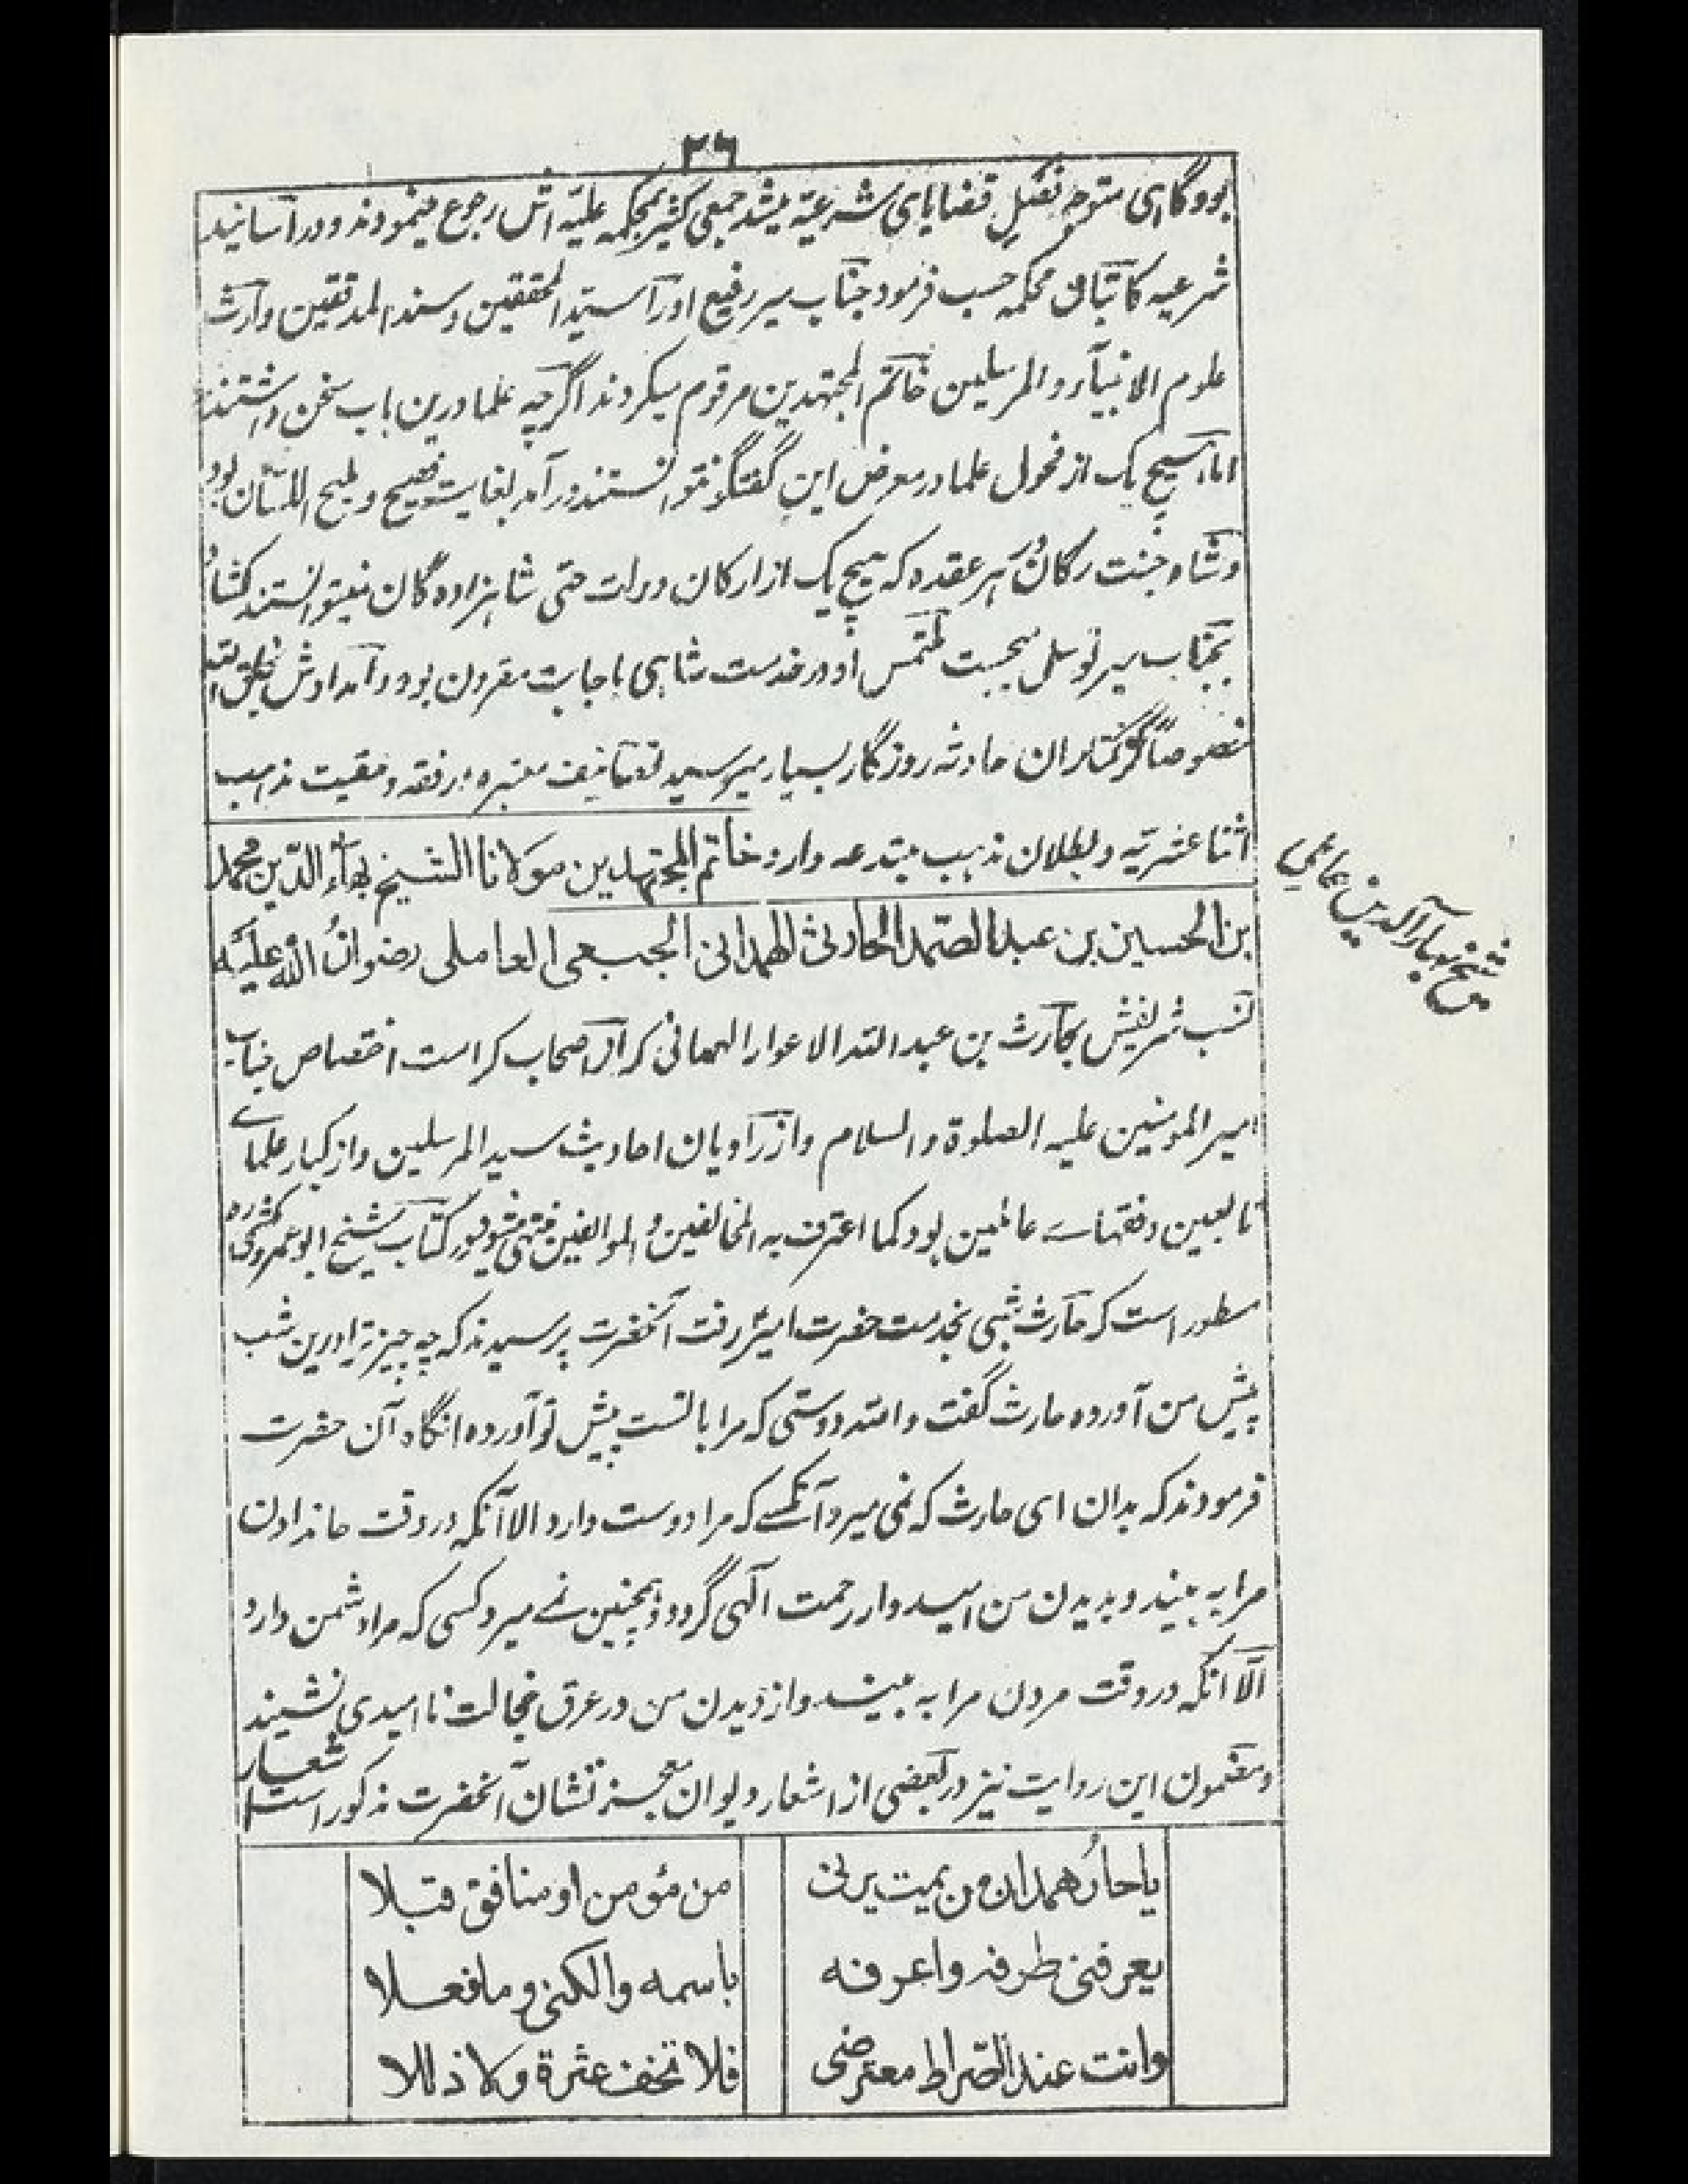 ٢٦
بود وگاهی متوجه فیصل قضایای شرعیة میشد جمعی کثیر بمحکمه علیّه اش رجوع مینمودند و در اسانید
شرعیه کاتبان محکمه حسب فرمود جناب میر رفیع او را سید المحققین و سند المدققین وارث
علوم الانبیآء و المرسلین خاتم المجتهدین مرقوم میکردند اگرچه علما درین باب سخن داشتند
اما هیچ یک از فحول علما در معرض این گفتگو نتوانستند در آمد بغایت فصیح و ملیح اللسان بود
و شاه جنت مکان هر عقده که هیچ یک از ارکان دولت حتی شاهزاده گان نمیتوانستند کشاد
بجناب میر توسل میجست ملتمس او در خدمت شاهی باجابت مقرون بود و آمدادش بخلق الله
خصوصاً گرفتاران حادثه روزگار بسیار میرسید تصانیف معتبره در فقه و حقیت مذهب
اثنا عشریّه و بطلان مذهب مبتدعه دارد خاتم المجتهدین مولانا الشیخ بهآء الدّین محمد
بن الحسین بن عبد الصّمد الحارثی الهمدانی الجبعی العاملی رضوانُ الله علیَه
شیخ بهاء الدین عاملی
نسب شریفش بحارث بن عبد الله الاعوار الهمدانی که از اصحاب کر است اختصاص جناب
امیر المومنین علیه الصلوة و السلام و از راویان احادیث سید المرسلین و از کبار علمای
تابعین و فقهاے عالمین بود کما اعترف به المخالفین و الموالفین در کتاب شیخ ابو عمرو کشی ره
مسطور است که حارث شبی بخدمت حضرت امیر رفت آنحضرت پرسیدند که چه چیز ترا درین شب
پیش من آورده حارث گفت والله دوستی که مرا باتست پیش تو آورده انگاه آن حضرت
فرمودند که بدان ای حارث که نمی میرد آنکسے که مرا دوست دارد الا آنکه در وقت جاندادن
مرا به بیند و بدیدن من امیدوار رحمت الٓهی گردد و همچنین نے میرد کسی که مرا دشمن دارد
الّا انکه در وقت مردن مرا به بیند و از دیدن من در عرق خجالت نا امیدی نشیند
و مضمون این روایت نیز در بعضی از اشعار دیوان معجز نشان آنحضرت مذکور است اشعار
یا حارُ همدان من یمت یرنی من مؤمن او منافق قبلا
یعرفنی طرفه و اعرفه باسمه والکنی و ما فعلا
وانت عند الصّراط معترضی فلا تخف عثرة ولا ذللا